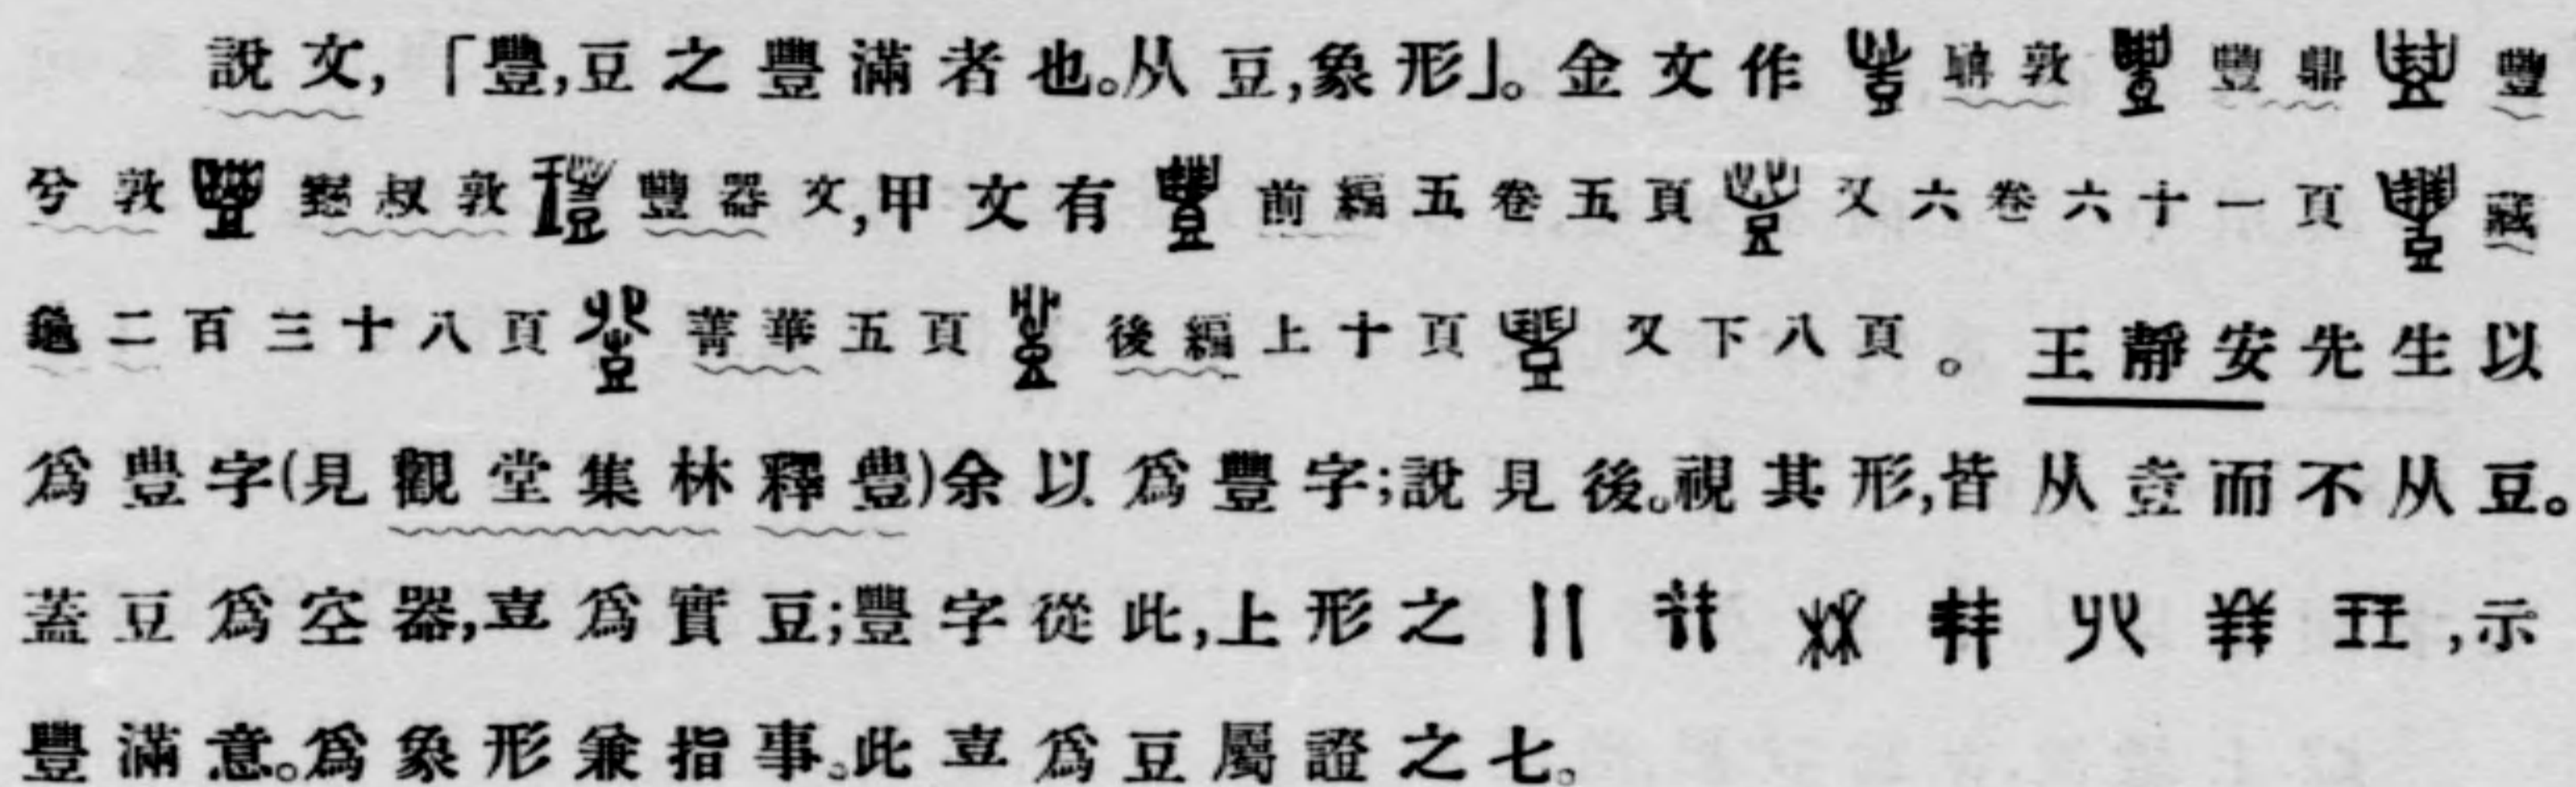 說文,「豐,豆之豐滿者也。从豆,象形」。金文作 敦 豐鼎 豐
兮敦 叔敦 豐器文,甲文有 前編五卷五頁 又六卷六十一頁 藏
龜二百三十八頁 菁華五頁 後編上十頁 又下八頁。王靜安先生以
爲豊字(見觀堂集林釋豊)余以爲豐字;說見後。視其形,皆从壴而不从豆。
蓋豆爲空器,壴爲實豆;豐字從此,上形之 ,示
豐滿意。爲象形兼指事。此壴爲豆屬證之七。